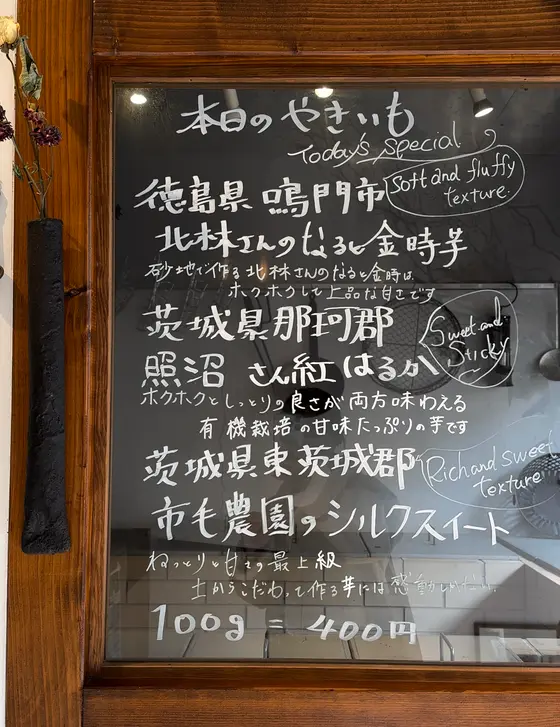 本日のやきいも
Today's special
徳島県 鳴門市
Soft and fluffy
texture.
北林さんのなると金時芋
砂地で作る北林さんのなると金時は
ホクホクして上品な甘さです
茨城県那珂郡
Sweet and
Sticky
照沼 さん紅はるか
ホクホクとしっとりの良さが両方味わえる
有機栽培の甘味たっぷりの芋です
茨城県東茨城郡
Rich and sweet
texture
市毛農園のシルクスイート
ねっとりと甘さの最上級
土からこだわって作る芋には感動
100g = 400円